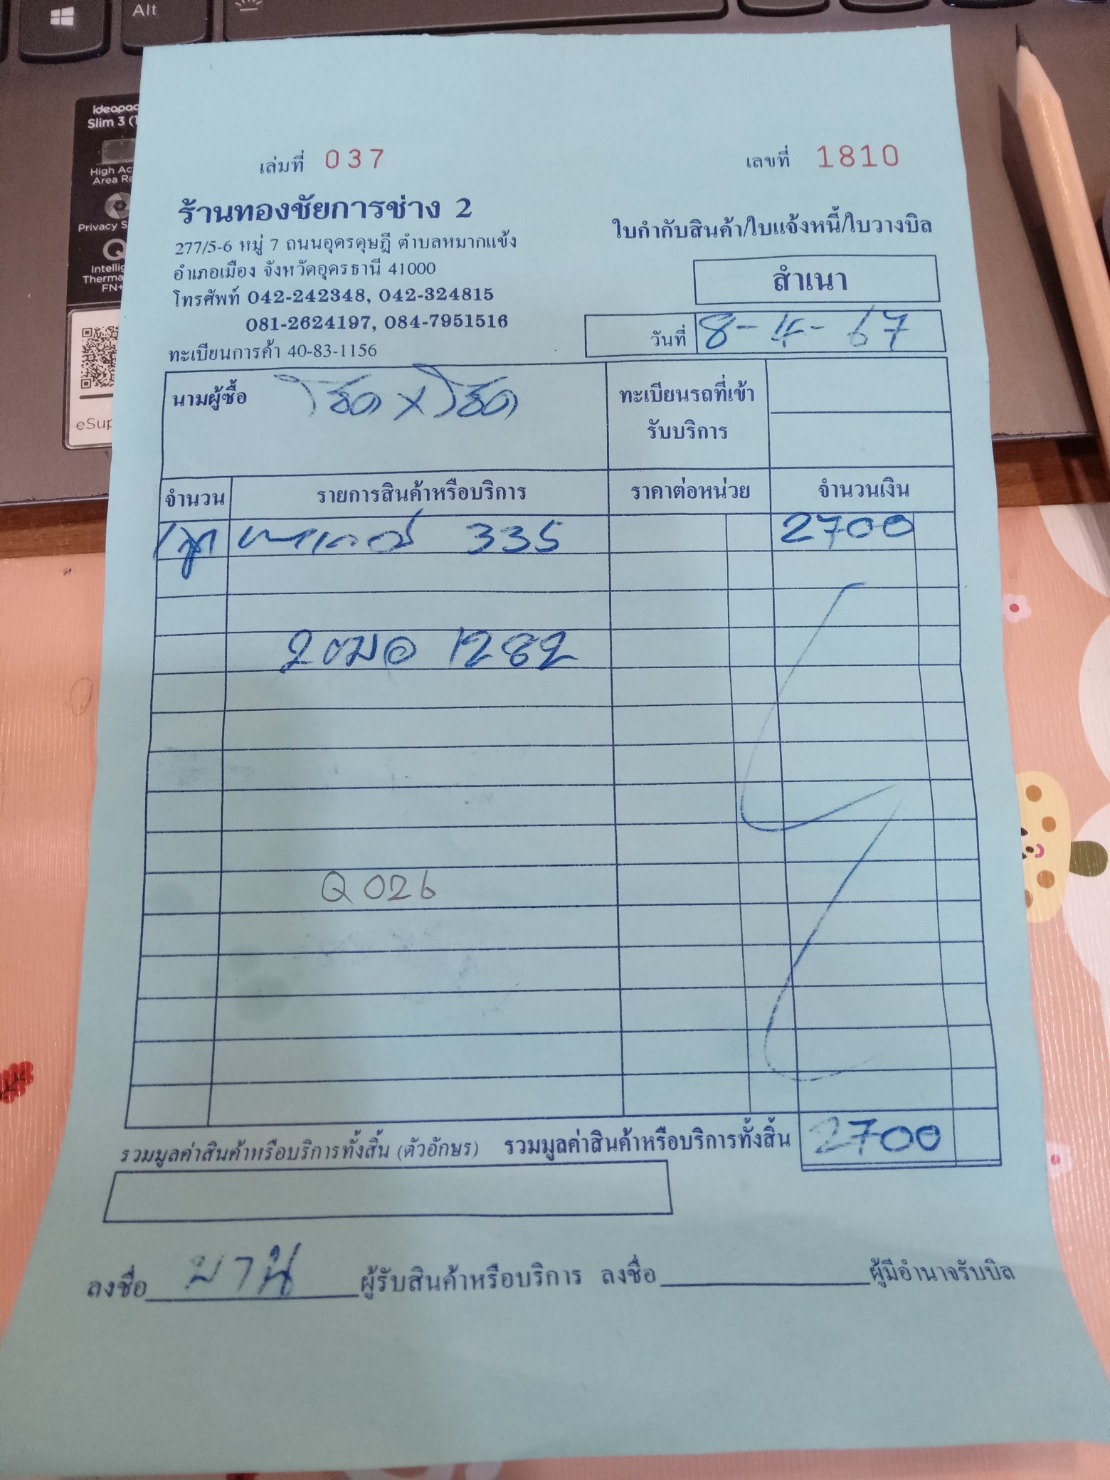 Alt
ideapad
Slim 3
High Ac
Area Ra
Privacy S
Intellig
Therma
FN+
eSup
เล่มที่ 037
เลขที่ 1810
ร้านทองชัยการช่าง 2
277/5-6 หมู่ 7 ถนนอุดรดุษฎี ตำบลหมากแข้ง
อำเภอเมือง จังหวัดอุดรธานี 41000
โทรศัพท์ 042-242348, 042-324815
081-2624197, 084-7951516
ทะเบียนการค้า 40-83-1156
ใบกำกับสินค้า/ใบแจ้งหนี้/ใบวางบิล
สำเนา
วันที่ 8-4-67
นามผู้ซื้อ โชค x โชค
ทะเบียนรถที่เข้า
รับบริการ
จำนวน รายการสินค้าหรือบริการ ราคาต่อหน่วย จำนวนเงิน
335 2700
1282
Q026
รวมมูลค่าสินค้าหรือบริการทั้งสิ้น (ตัวอักษร) รวมมูลค่าสินค้าหรือบริการทั้งสิ้น 2700
ลงชื่อ ผู้รับสินค้าหรือบริการ ลงชื่อ ผู้มีอำนาจรับบิล